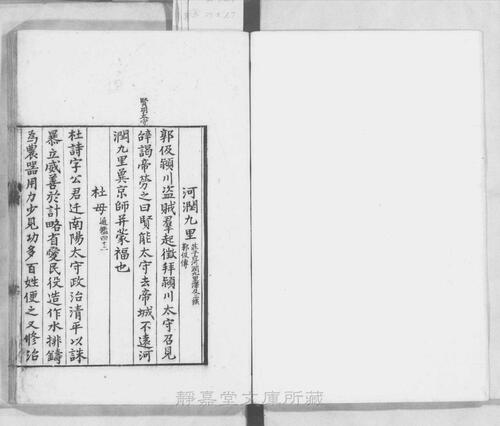 河潤九里
郭伋潁川盜賊羣起徵拜潁川太守召見
辞謁帝勞之曰賢能太守去帝城不遠河
潤九里冀京師并蒙福也
杜母 通鑑四十二
杜詩字公君迁南陽太守政治清平以誅
暴立威善於計略省愛民役造作水排鋳
為農器用力少見功多百姓便之又修治
靜嘉堂文庫所藏